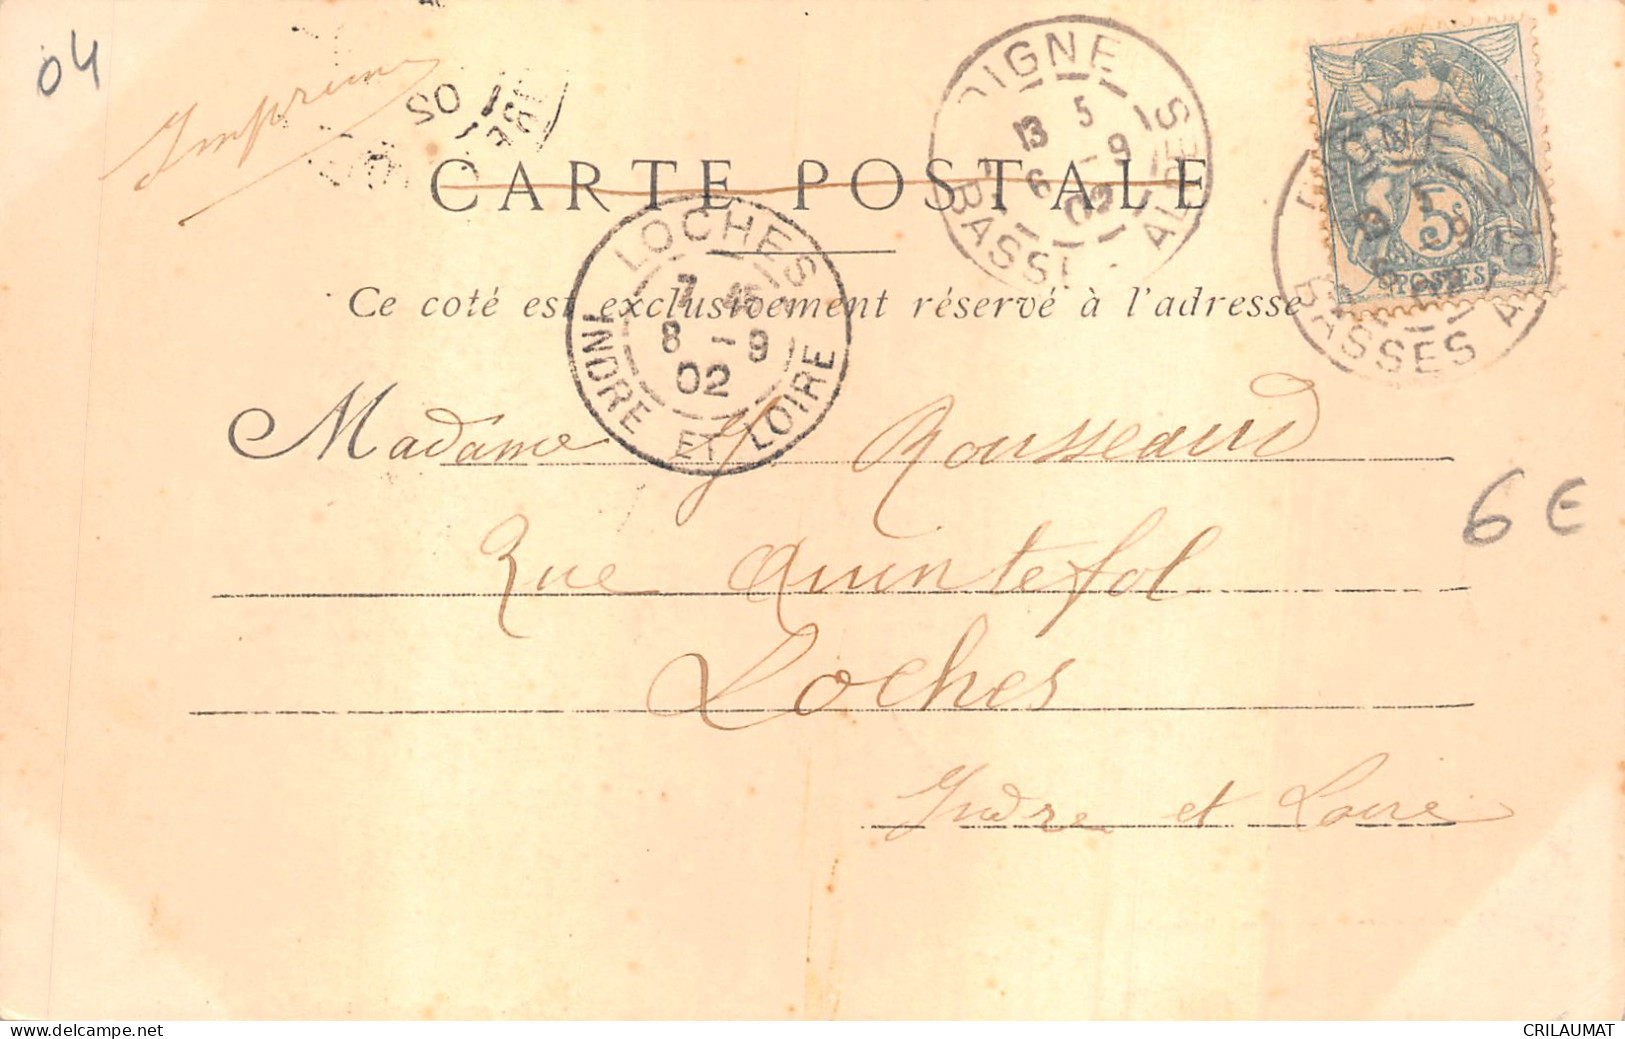 04
Imprimé
CARTE POSTALE
Ce coté est exclusivement réservé à l'adresse
DIGNE
13 5
6 - 9
02
BASSES ALPES
DIGNE
BASSES ALPES
5c
POSTES
LOCHES
7 15
8 - 9
02
INDRE ET LOIRE
Madame J Rousseau
6 €
Rue Quintefol
Loches
Indre et Loire
CRILAUMAT